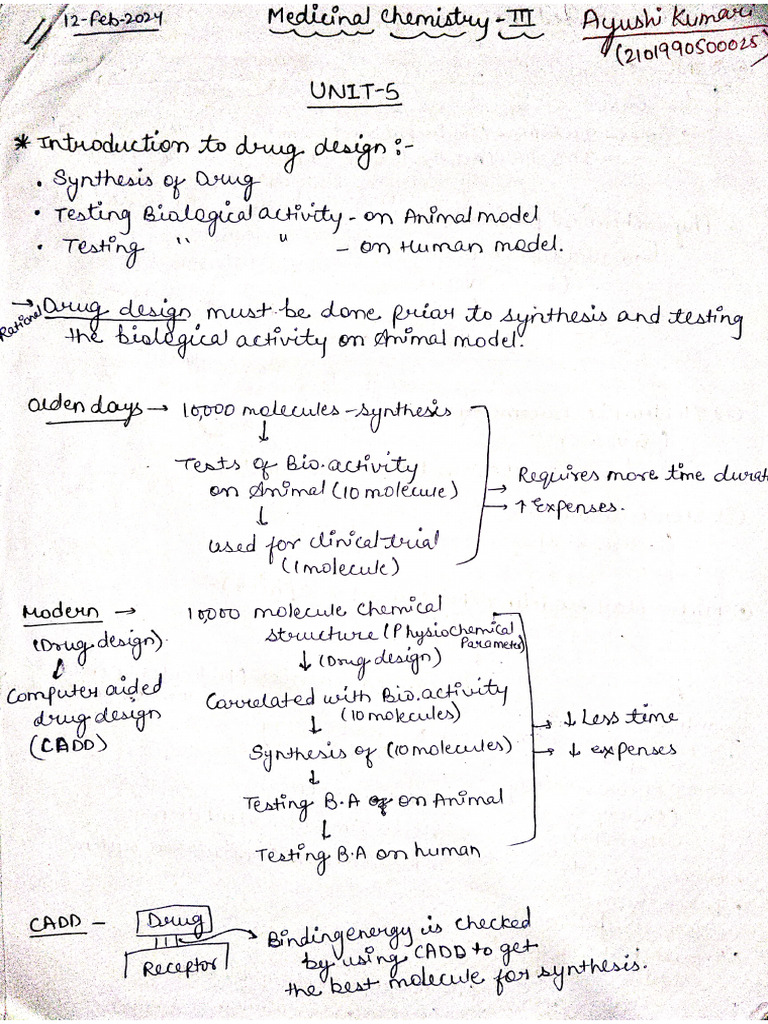 12-Feb-2024
Medicinal Chemistry-III
Ayushi Kumari
(2101990500025)
UNIT-5
* Introduction to drug design :-
• Synthesis of Drug
• Testing Biological activity - on Animal model
• Testing " " - on Human model.
→ Rational Drug design must be done priar to synthesis and testing
the biological activity on Animal model.
Olden days → 10,000 molecules - synthesis
↓
Tests of Bio.activity
on Animal (10 molecule)
↓
used for clinical trial
(1 molecule)
→ Requires more time durat
→ ↑ Expenses.
Modern →
(Drug design)
↓
Computer aided
drug design
(CADD)
10,000 molecule chemical
structure (Physiochemical
Parameter)
↓ (Drug design)
Carrelated with Bio.activity
(10 molecules)
↓
Synthesis of (10 molecules)
↓
Testing B.A on Animal
↓
Testing B.A on human
→ ↓ Less time
→ ↓ expenses
CADD -
Drug
Receptor
Binding energy is checked
by using CADD to get
the best molecule for synthesis.